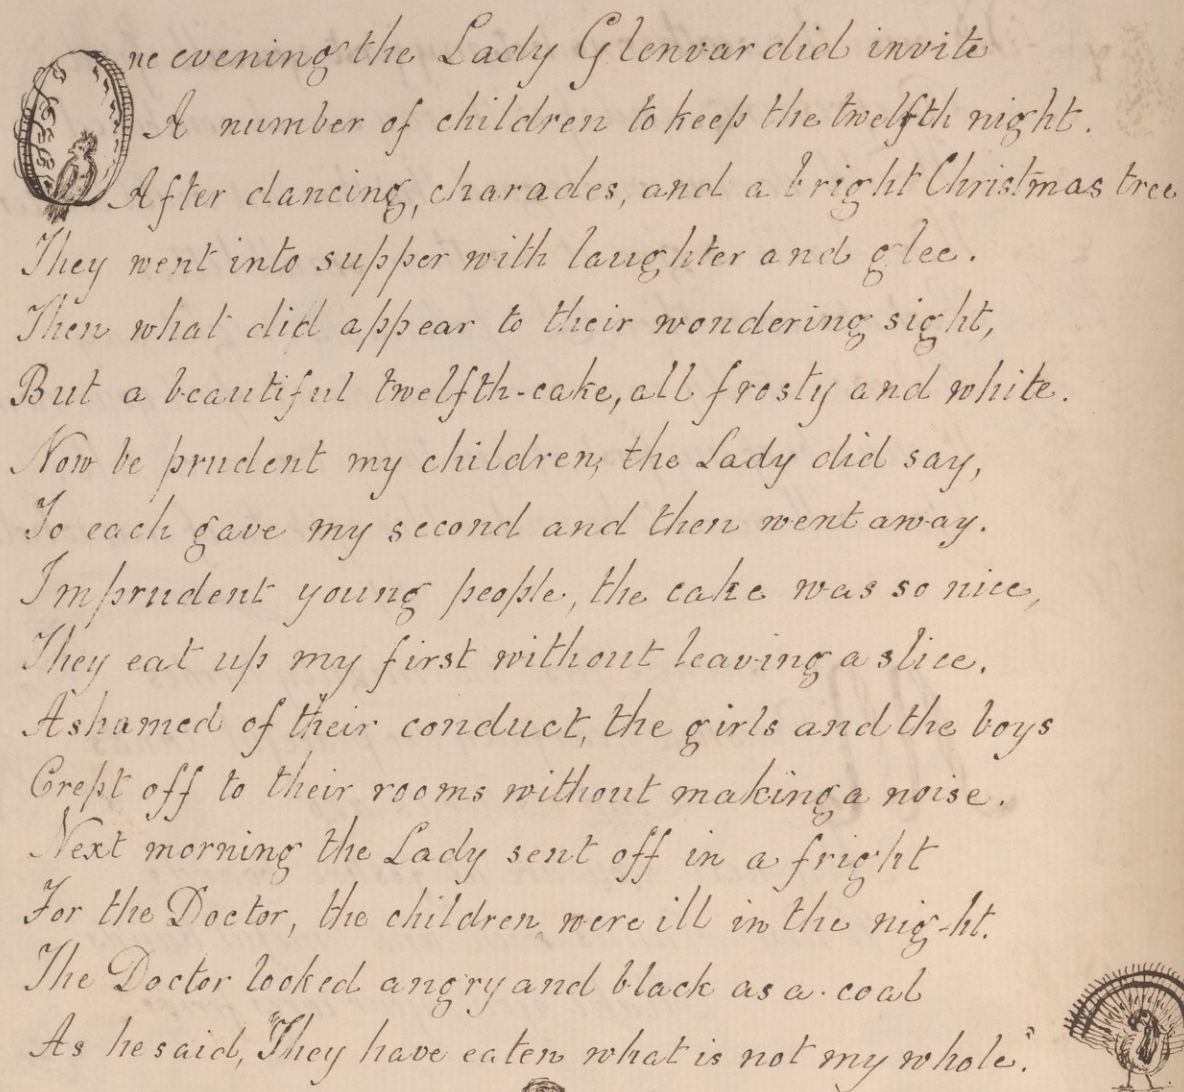 One evening the Lady Glenvar did invite
A number of children to keep the twelfth night.
After dancing, charades, and a bright Christmas tree
They went into supper with laughter and glee.
Then what did appear to their wondering sight,
But a beautiful twelfth-cake, all frosty and white.
Now be prudent my children, the Lady did say,
To each gave my second and then went away.
Imprudent young people, the cake was so nice,
They eat up my first without leaving a slice.
Ashamed of their conduct, the girls and the boys
Crept off to their rooms without making a noise.
Next morning the Lady sent off in a fright
For the Doctor, the children were ill in the night.
The Doctor looked angry and black as a coal
As he said, "They have eaten what is not my whole".